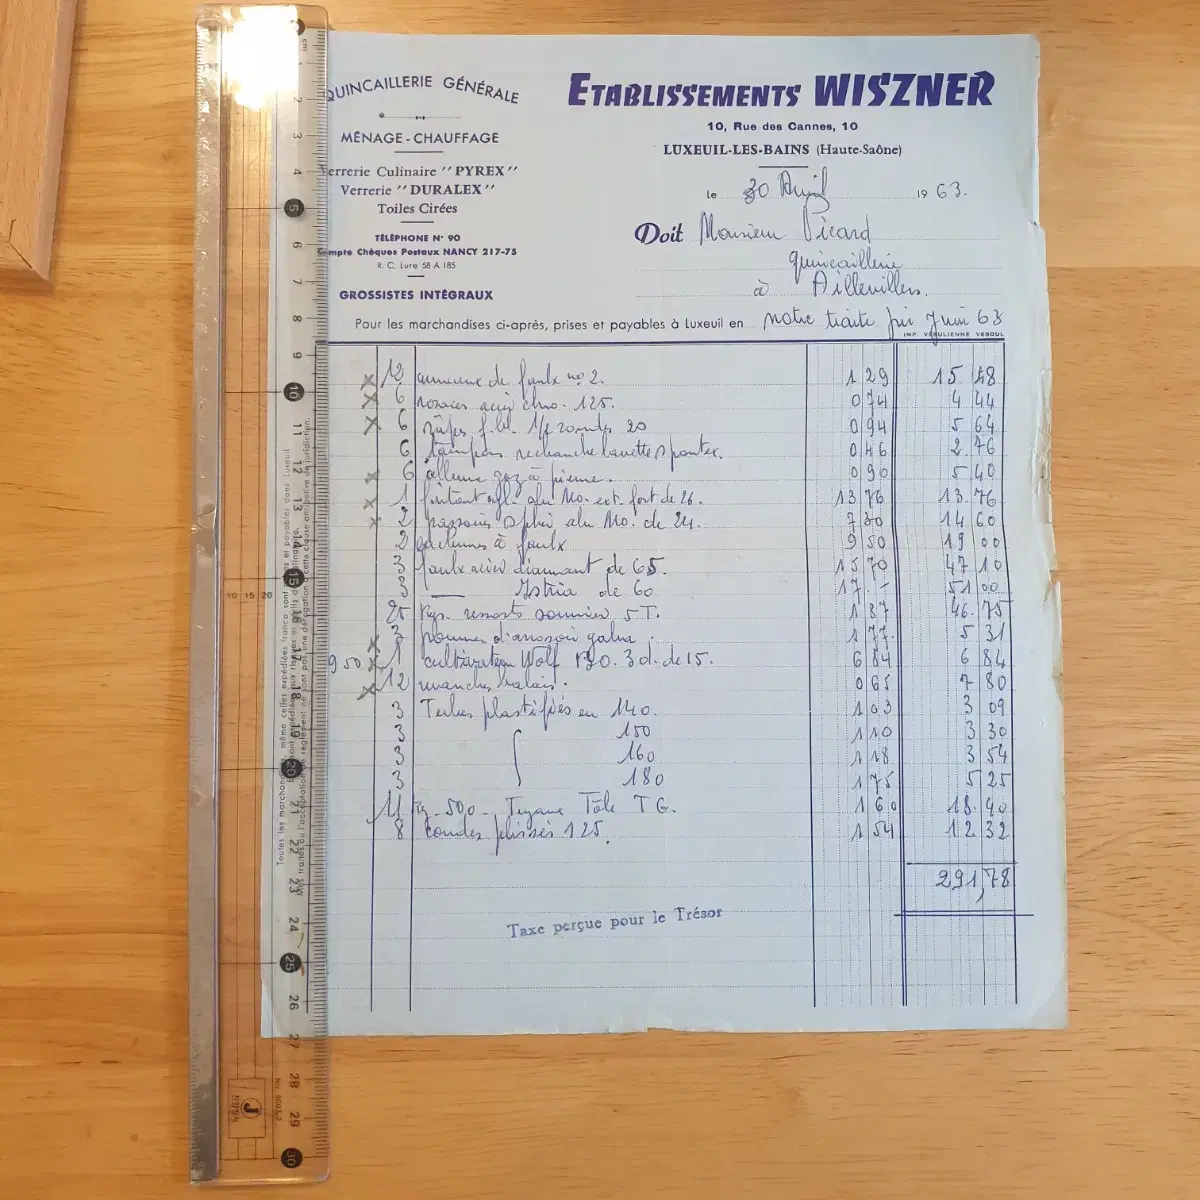 QUINCAILLERIE GÉNÉRALE
MÉNAGE - CHAUFFAGE
Verrerie Culinaire "PYREX"
Verrerie "DURALEX"
Toiles Cirées
TÉLÉPHONE N° 90
Compte Chèques Postaux NANCY 217-75
R. C. Lure 58 A 185
GROSSISTES INTÉGRAUX
ETABLISSEMENTS WISZNER
10, Rue des Cannes, 10
LUXEUIL-LES-BAINS (Haute-Saône)
le 30 Avril 1963.
Doit Monsieur Picard
Quincaillerie
à Aillevillers.
Pour les marchandises ci-après, prises et payables à Luxeuil en notre traite fin Juin 63
IMP. VÉSULIENNE VESOUL
12 anneaux de faulx no 2. 1 29 15 48
6 rosaces acier chro. 125. 0 74 4 44
6 râpes 1/2 rondes 20 0 94 5 64
6 tampons rechange lavettes spontex. 0 46 2 76
6 allume gaz à pierre. 0 90 5 40
1 alu Mo. ext. fort de 26. 13 76 13 76
2 passoires alu Mo. de 24. 7 30 14 60
2 enclumes à faulx 9 50 19 00
3 faulx acier diamant de 65. 15 70 47 10
3 — Istria de 60 17. - 51 00
25 Kgs. ressorts sommier 5 T. 1 87 46.75
3 pommes d'arrosoir galva. 1 77. 5 31
9 50 1 cultivateur Wolf 3 d. de 15. 6 84 6 84
12 manches balais. 0 65 7 80
3 Tubes plastifiés en 140. 1 03 3 09
3 150 1 10 3 30
3 160 1 18 3 54
3 180 1 75 5 25
11 Kg. 500 Tuyaux Tôle T G. 1 60 18.40
8 coudes plissés 125. 1 54 12 32
291,78
Taxe perçue pour le Trésor
cm
1
2
3
4
5
6
7
8
9
10
11
12
13
14
15
16
17
18
19
20
21
22
23
24
25
26
27
28
29
30
10 15 20
J